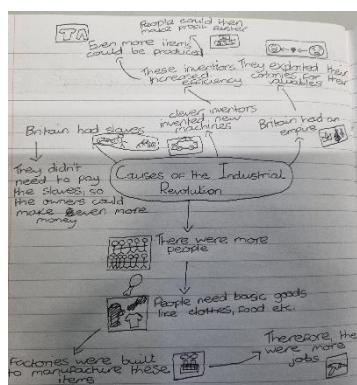 People could then
make profit faster
TA
Even more items
could be produced
These inventions
increased
efficiency
They exploited their
colonies for their
valuables
clever inventors
invented new
machines
Britain had slaves
Britain had an
empire
They didn't
need to pay
the slaves, so
the owners could
make even more
money
Causes of the Industrial
Revolution
There were more
people
People need basic goods
like clothes, food etc.
Factories were built
to manufacture these
items
Therefore, the
were more
jobs